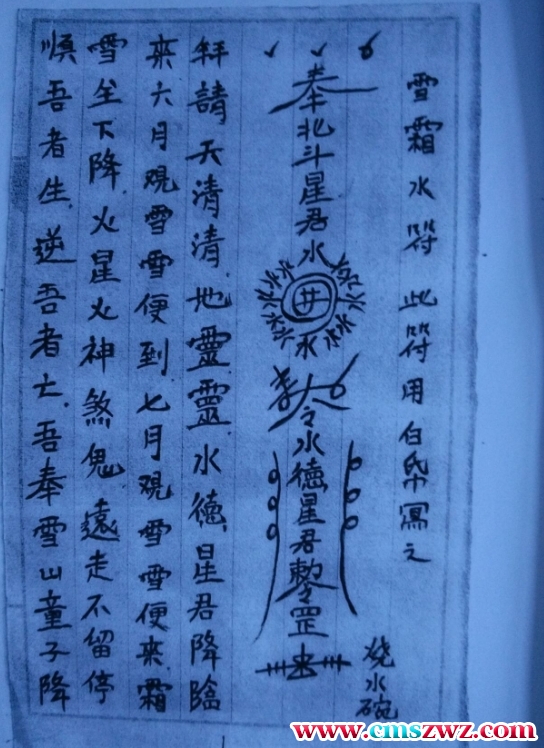 雪霜水符 此符用白帋寫之
燒水碗
奉北斗星君水
井
水
令水德星君勅罡
拜請天清清地靈靈水德星君降臨
來六月覌雪雪便到七月覌雪雪便來霜
雪下降火星火神煞鬼遠走不留停
順吾者生逆吾者亡吾奉雪山童子降
www.cmszwz.com